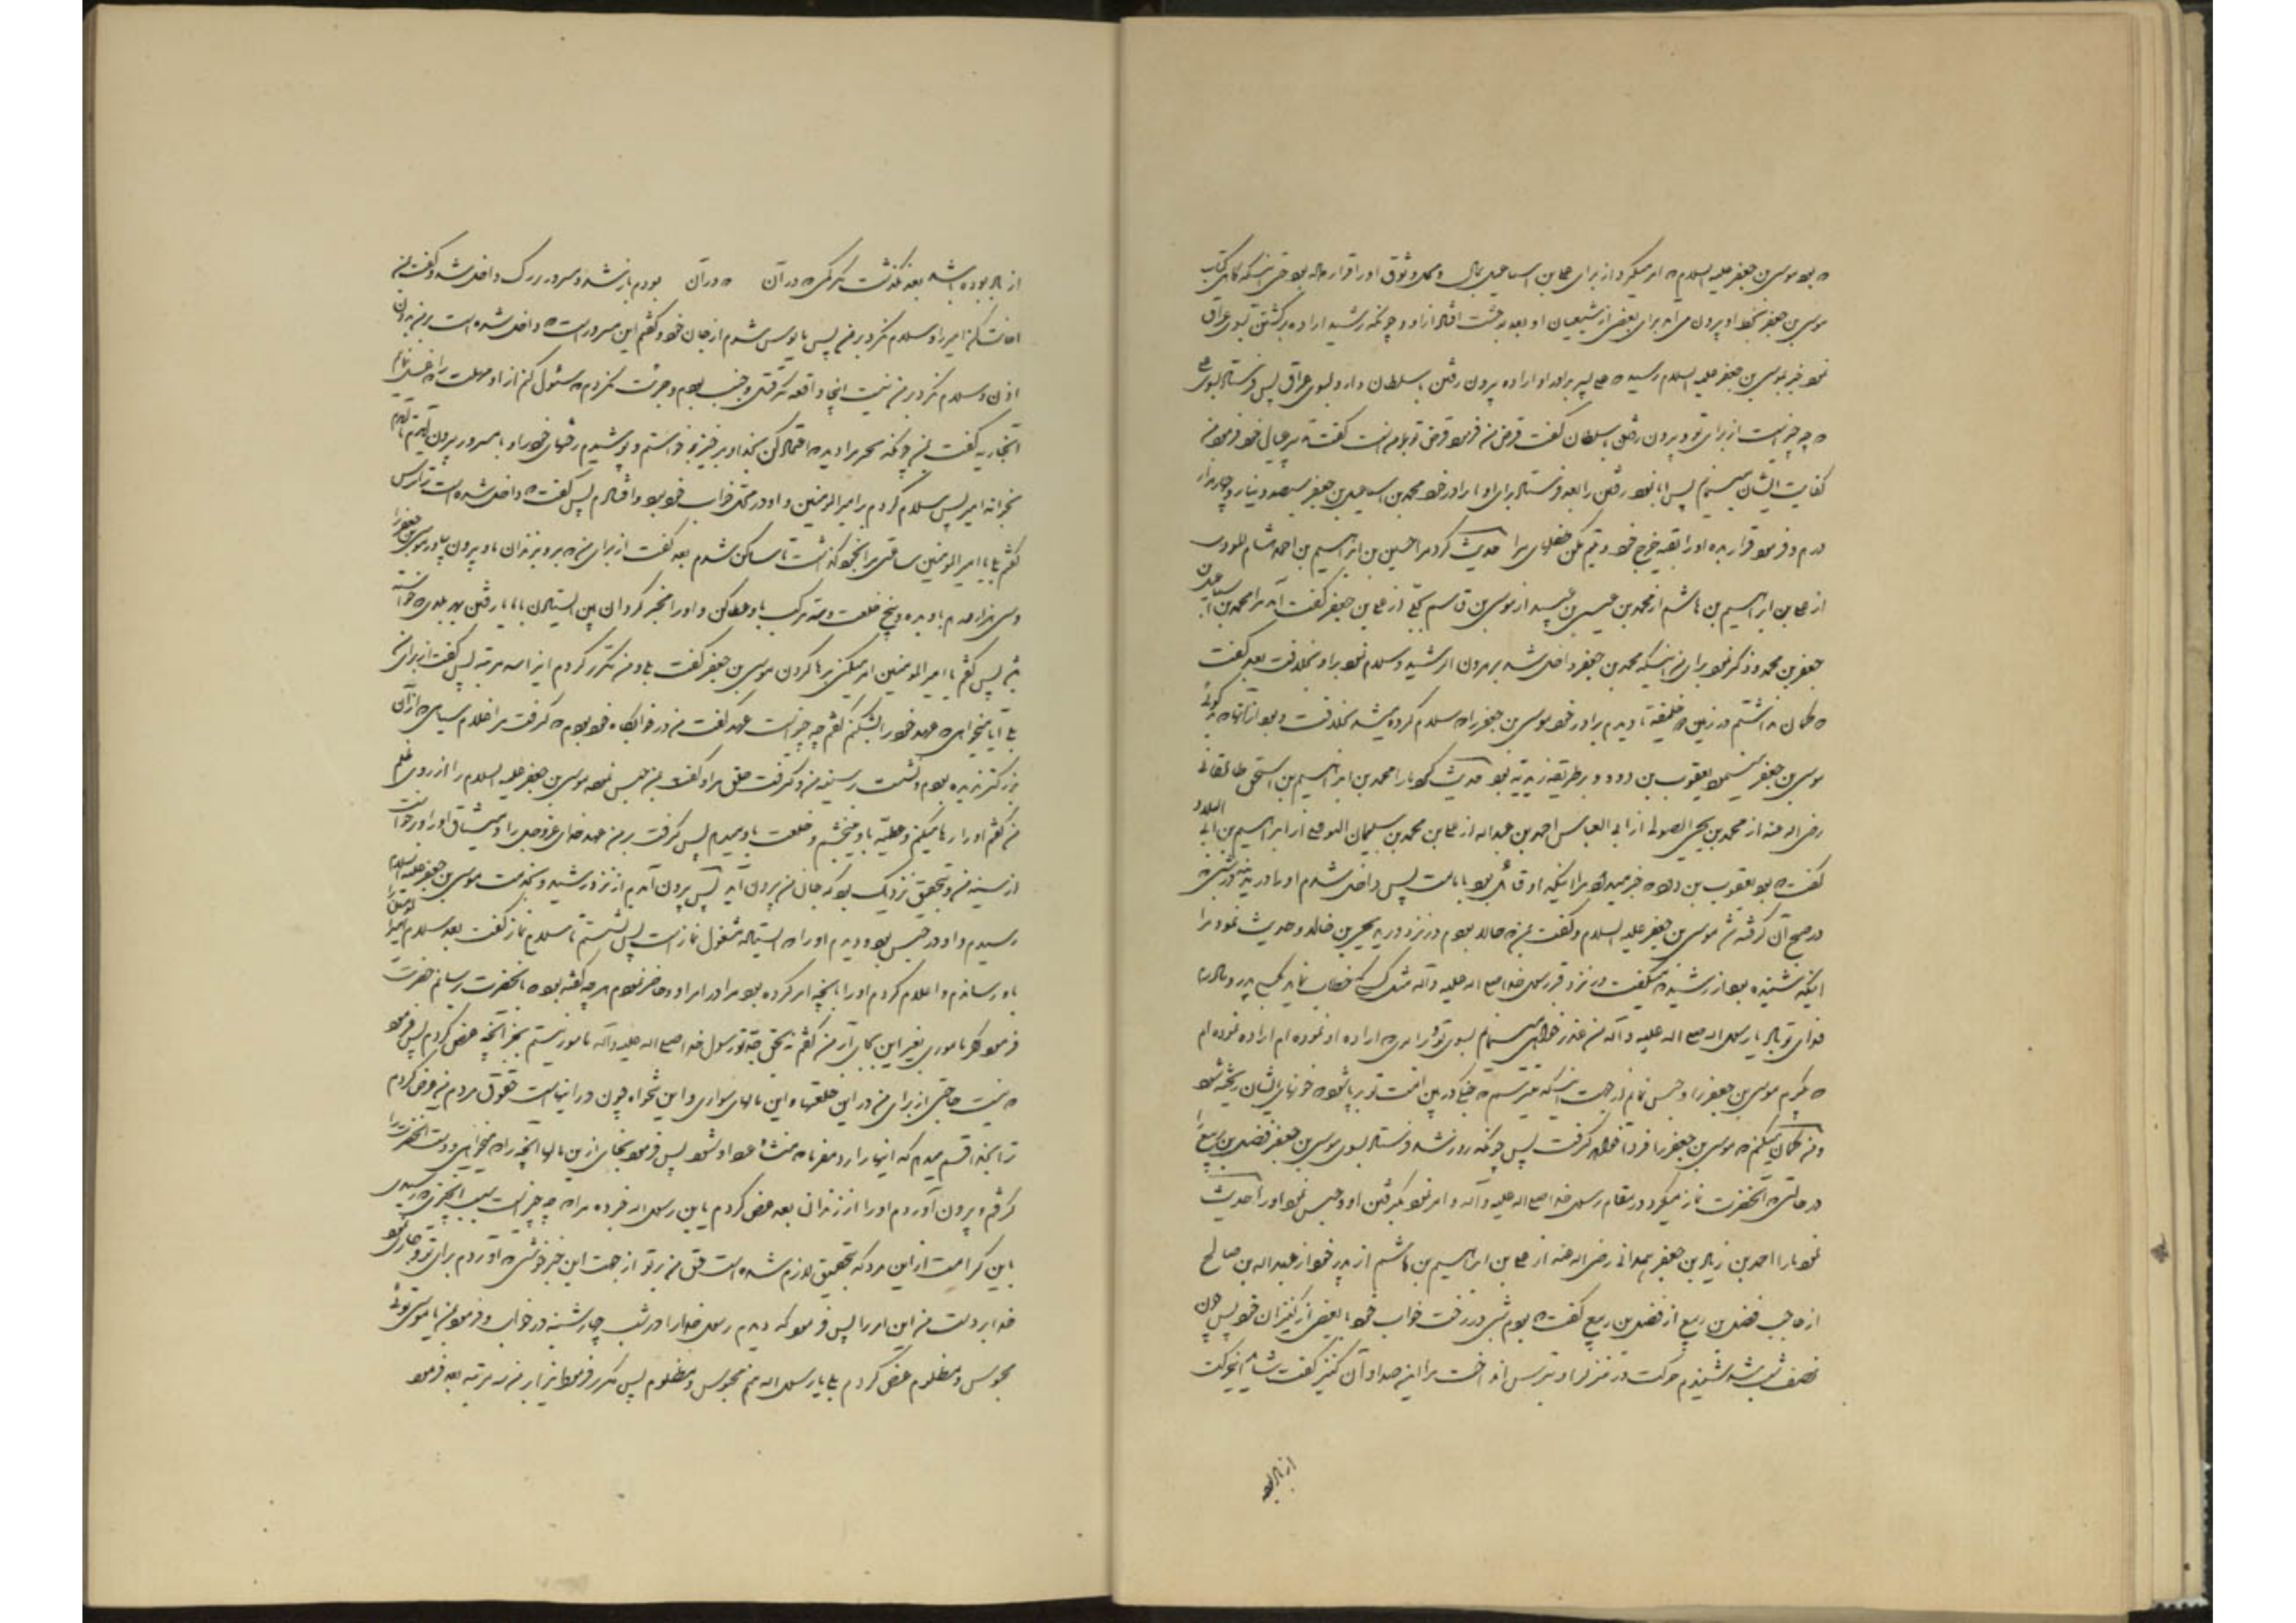 که بود موسی بن جعفر علیه السلام که امر میکرد از برای علی بن اسماعیل بمال و محل وثوق او را قرار داده بود حتی اینکه گاهی کتاب
موسی بن جعفر بخط او بیرون می آمد برای بعضی از شیعیان او بعد بوحشت افتاد از او و چونکه رشید اراده برگشتن بسوی عراق
نمود خبر بموسی بن جعفر علیه السلام رسید که علی پسر برادر او اراده بیرون رفتن با سلطان دارد بسوی عراق پس فرستاد بسوی علی
که چه چیز است از برای تو و بیرون رفتن با سلطان گفت قرض من فرمود قرض تو با من است گفت تدبیر عیال خود فرمود من
کفایت ایشان مینمایم پس ابا نمود رفتن را بعد فرستاد برای او برادر خود محمد بن اسماعیل بن جعفر سیصد دینار و چهار هزار
درم و فرمود قرار بده او را بقیه خرج خود و یتیم مکن طفلهای مرا حدیث کرد مرا حسین بن ابراهیم بن احمد بن هشام المودب
از علی بن ابراهیم بن هاشم از محمد بن عیسی بن عبید از موسی بن قاسم بجلی از علی بن جعفر گفت آمد مرا محمد بن اسماعیل بن
جعفر بن محمد و ذکر نمود برای من اینکه محمد بن جعفر داخل شد بر هارون الرشید و سلام نمود بر او بخلافت بعد گفت
که گمان نداشتم در زمین دو خلیفه تا دیدم برادر خود موسی بن جعفر را که سلام کرده میشد بخلافت و بود از آنها که بدگوئی
موسی بن جعفر مینمود یعقوب بن داود و بر طریقه زیدیه بود حدیث کرد ما را محمد بن ابراهیم بن اسحق طالقانی
رضی الله عنه از محمد بن یحیی الصولی از ابی العباس احمد بن عبدالله از علی بن محمد بن سلیمان النوفلی از ابراهیم بن ابی البلاد
گفت که بود یعقوب بن داود خبر میداد مرا اینکه او قائل بود بامامت پس داخل شدم او را در مدینه در شبی
در صبح آن گرفته شد موسی بن جعفر علیه السلام و گفت بمن که حالا بودم در نزد وزیر یحیی بن خالد و حدیث نمود مرا
اینکه شنیده بود از رشید که میگفت در نزد قبر رسول خدا صلی الله علیه و آله مثل کسی که خطاب نماید بکسی پدر و مادرم
فدای تو باد یا رسول الله صلی الله علیه و آله من عذر خواهی مینمایم بسوی تو از امری که اراده او نموده ام اراده نموده ام
که بگیرم موسی بن جعفر را و حبس نمایم از جهت اینکه میترسم که جنگی در بین امت تو برپا شود که خونهای ایشان ریخته شود
و من گمان میکنم که موسی بن جعفر را فردا خواهد گرفت پس چونکه روز شد فرستاد بسوی موسی بن جعفر فضل بن ربیع را
در حالتی که آنحضرت نماز میکرد در مقام رسول خدا صلی الله علیه و آله و امر نمود بگرفتن او و حبس نمود او را حدیث
نمود ما را احمد بن زیاد بن جعفر همدانی رضی الله عنه از علی بن ابراهیم بن هاشم از پدر خود از عبدالله بن صالح
از حاجب فضل بن ربیع از فضل بن ربیع گفت که بودم شبی در رخت خواب خود با بعضی از کنیزان خود پس چون
نصف شب شد شنیدم حرکت در مقصوره او بترس انداخت مرا این صدا و آن کنیز گفت شاید این حرکت
از باد بود
از باد بوده باشد بعد نگذشت مگر کمی که در آن که در آن بودم باز شد و مسرور بزرگ داخل شد و گفت بمن
اجابت کن امیر را و سلام نکرد بر من پس مایوس شدم از جان خود و گفتم این مسرور است که داخل شده است بر من بدون
اذن و سلام نکرد بر من نیست اینجا واقعه مگر قتل و جنب بودم و جرئت نکردم که سئوال کنم از او مهلت را که غسل نمایم
آنجاریه گفت بمن چونکه تحیر مرا دید که اعتماد کن بخدا و برخیز برخواستم و پوشیدم رختهای خود را و با مسرور بیرون آمدیم تا آمدم
بخانه امیر پس سلام کردم بر امیر المومنین و او در محل خواب خود بود و افتادم پس گفت که داخل شده است تو را ترس
گفتم بلی یا امیر المومنین ساعتی مرا بخود گذاشت تا ساکن شدم بعد گفت از برای من که برو بزندان ما و بیرون بیاور موسی بن جعفر را
و سی هزار درم باو بده و پنج خلعت و سه مرکب باو عطا کن و او را مخیر گردان بین ایستادن با ما یا رفتن بهر بلدی که خواسته
باشد پس گفتم یا امیر المومنین امر میکنی برها کردن موسی بن جعفر گفت بلی و من تکرار کردم این را سه مرتبه پس گفت از برای من
بلی آیا میخواهی که عهد خود را بشکنم گفتم چه چیز است عهد گفت من در خوابگاه خود بودم که گرفت مرا غلام سیاهی که از آن
بزرگتر ندیده بودم و نشست بر سینه من و گرفت حلق مرا و گفت بمن حبس نموده موسی بن جعفر علیه السلام را از روی ظلم
من گفتم او را رها میکنم و عطیه باو میبخشم و خلعت باو میدهم پس گرفت بر من عهد خدای عز و جل را و میثاق او را و برخواست
از سینه من و بتحقیق نزدیک بود که جان من بیرون آید پس بیرون آمدم از نزد رشید و بخدمت موسی بن جعفر علیه السلام
رسیدم و او در حبس بود و دیدم او را که ایستاده مشغول نماز است پس نشستم تا سلام نماز گفت بعد سلام امیر المومنین را
باو رساندم و اعلام کردم او را بآنچه امر کرده بود مرا در امر او و حاضر نمودم هر چه گفته بود که بآنحضرت رسانم حضرت
فرمود اگر ماموری بغیر این بجای آر من گفتم نه بحق جد تو رسول خدا صلی الله علیه و آله مامور نیستم بجز آنچه عرض کردم پس فرمود
که نیست حاجتی از برای من در این خلعتها و این مالهای سواری و این تنخواه چون در اینهاست حقوق مردم من عرض کردم
ترا بخدا قسم میدهم که اینها را رد مفرما که منشاء عداوت شود پس فرمود بجای از این مالها آنچه را که میخواهی و دست آنحضرت را
گرفتم و بیرون آوردم او را از زندان بعد عرض کردم یا بن رسول الله خبر ده مرا که چه چیز است سبب اینچیزی که رسیدی
باین کرامت از این مرد که بتحقیق لازم شده است حق من بر تو از جهت این خبر خوشی که آوردم برای تو و جاری نمود
خدا بر دست من این امر را پس فرمود که دیدم رسول خدا را در شب چهارشنبه در خواب و فرمود بمن یا موسی توئی
محبوس و مظلوم عرض کردم بلی یا رسول الله منم محبوس و مظلوم پس مکرر فرمود این را بر من سه مرتبه بعد فرمود